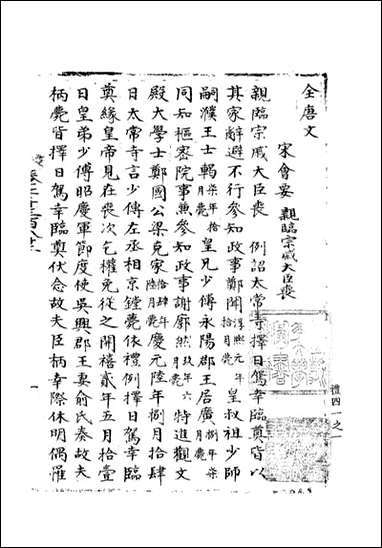 全唐文
宋會要 親臨宗戚大臣喪
親臨宗戚大臣喪 例詔太常寺擇日駕幸臨奠皆以
其家辭避不行參知政事鄭聞淳熙元年拾月薨 皇叔祖少師
嗣濮王士輵柒年拾月薨 皇兄少傅永陽郡王居廣捌年柒月薨
同知樞密院事兼參知政事謝廓然玖年六月薨 特進觀文
殿大學士鄭國公梁克家拾肆年陸月薨 慶元陸年捌月拾肆
日太常寺言少傅左丞相京鏜薨依禮例擇日駕幸臨
奠緣皇帝見在喪次乞權免從之開禧貳年五月拾壹
日皇弟少傅昭慶軍節度使吳興郡王妻俞氏奏故夫
柄薨背擇日駕幸臨奠伏念故夫臣柄幸際休明偶罹
禮四一之一
一